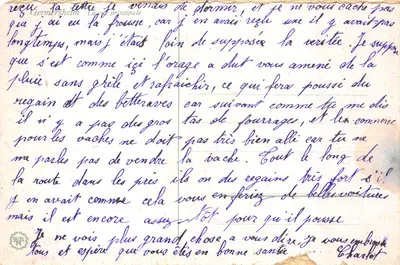 reçu ta lettre je venais de dormir, et je ne vous cache pas
que j'ai eu la frousse car j'en avais reçu une il y avait pas
longtemps, mais j'était loin de supposer la veritée. Je suppose
que s'est comme içi l'orage a dut vous amené de la
pluie sans grêle et rafraichir, ce qui fera poussé du
regain et des betteraves car suivant comme tu me dis
il n'y a pas des gros tas de fourrages, et le commerce
pour les vaches ne doit pas très bien allé car tu ne
me parles pas de vendre la vache. Tout le long de
la route dans les prés ils on des regains très fort s'il
y en avait comme cela vous en feriez de belles voitures
mais il est encore assez tôt pour qu'il pousse
Je ne vois plus grand chose a vous dire, Je vous embrasse
tous et espère que vous êtes en bonne santée
Charlot